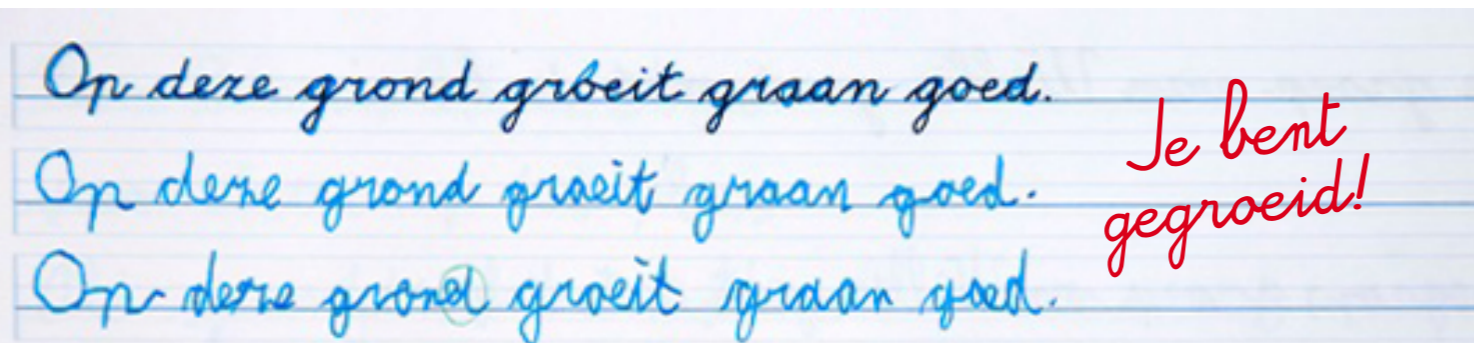 Op deze grond groeit graan goed.
Op deze grond groeit graan goed.
Op deze grond groeit graan goed.
Je bent
gegroeid!